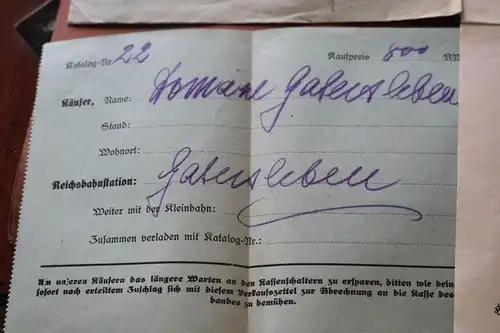 Katalog-Nr. 22 Kaufpreis 800 RM
Käufer, Name: Domäne Gatersleben
Stand:
Wohnort:
Reichsbahnstation: Gatersleben
Weiter mit der Kleinbahn:
Zusammen verladen mit Katalog-Nr.:
Um unseren Käufern das längere Warten an den Kassenschaltern zu ersparen, bitten wir drin
sofort nach erteiltem Zuschlag sich mit diesem Verkaufszettel zur Abrechnung an die Kasse des
bandes zu bemühen.